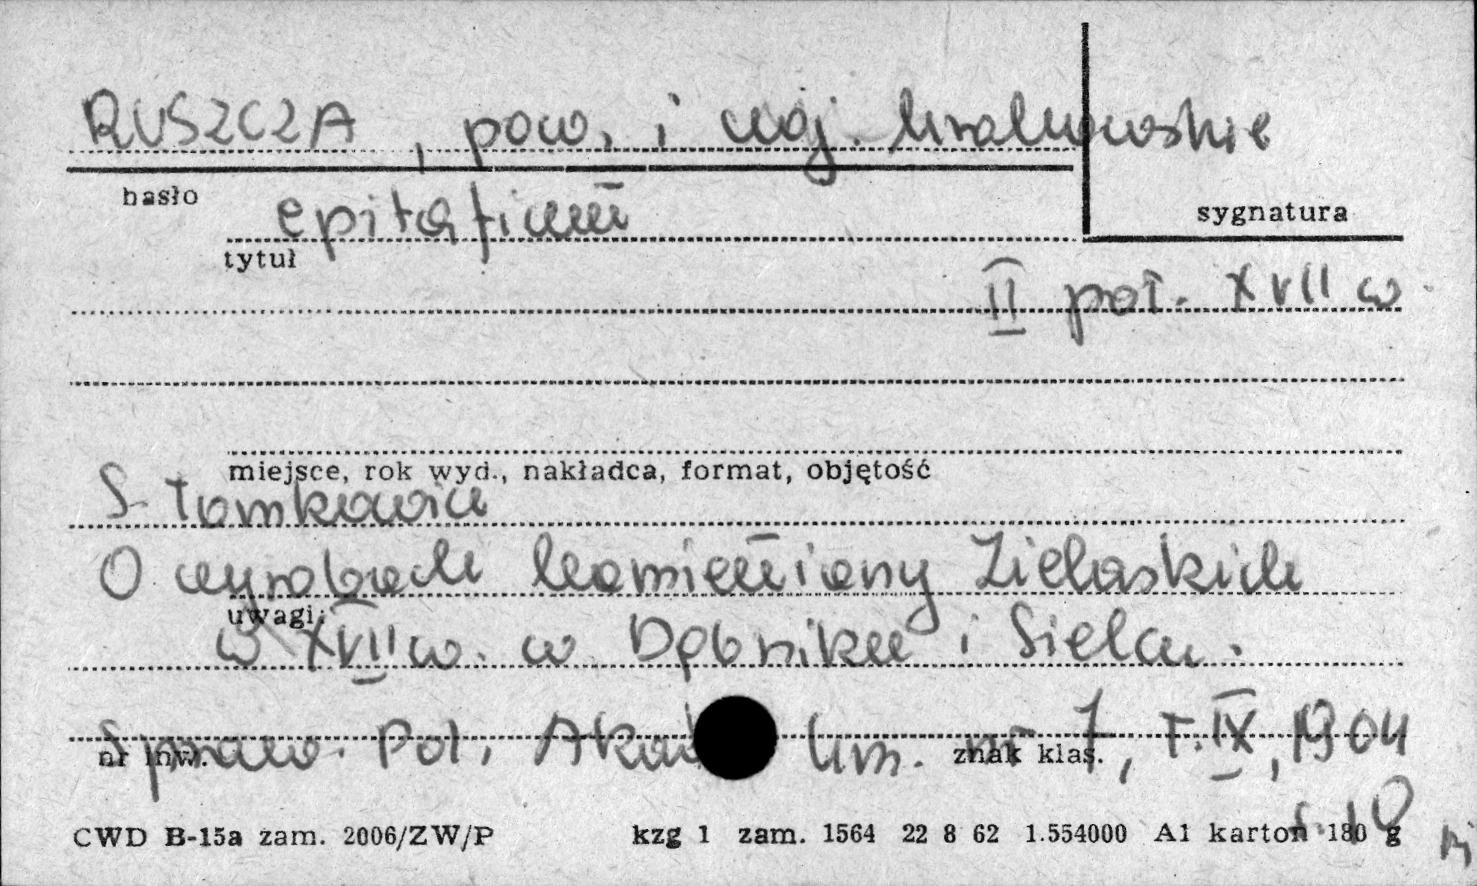 RUSZCZA, pow. i woj. krakowskie
hasło
epitafium
sygnatura
tytuł
II poł. XVII w.
miejsce, rok wyd., nakładca, format, objętość
S. Tomkowicz
O wyrobach kamieniarzy
uwagi:
w XVII w. w Dębniku i Sielcu.
Spraw. Pol. Akad. Um. nr 7, T. IX, 1904
nr inw. znak klas.
s. 10
CWD B-15a zam. 2006/ZW/P kzg 1 zam. 1564 22 8 62 1.554000 A1 karton 180 g